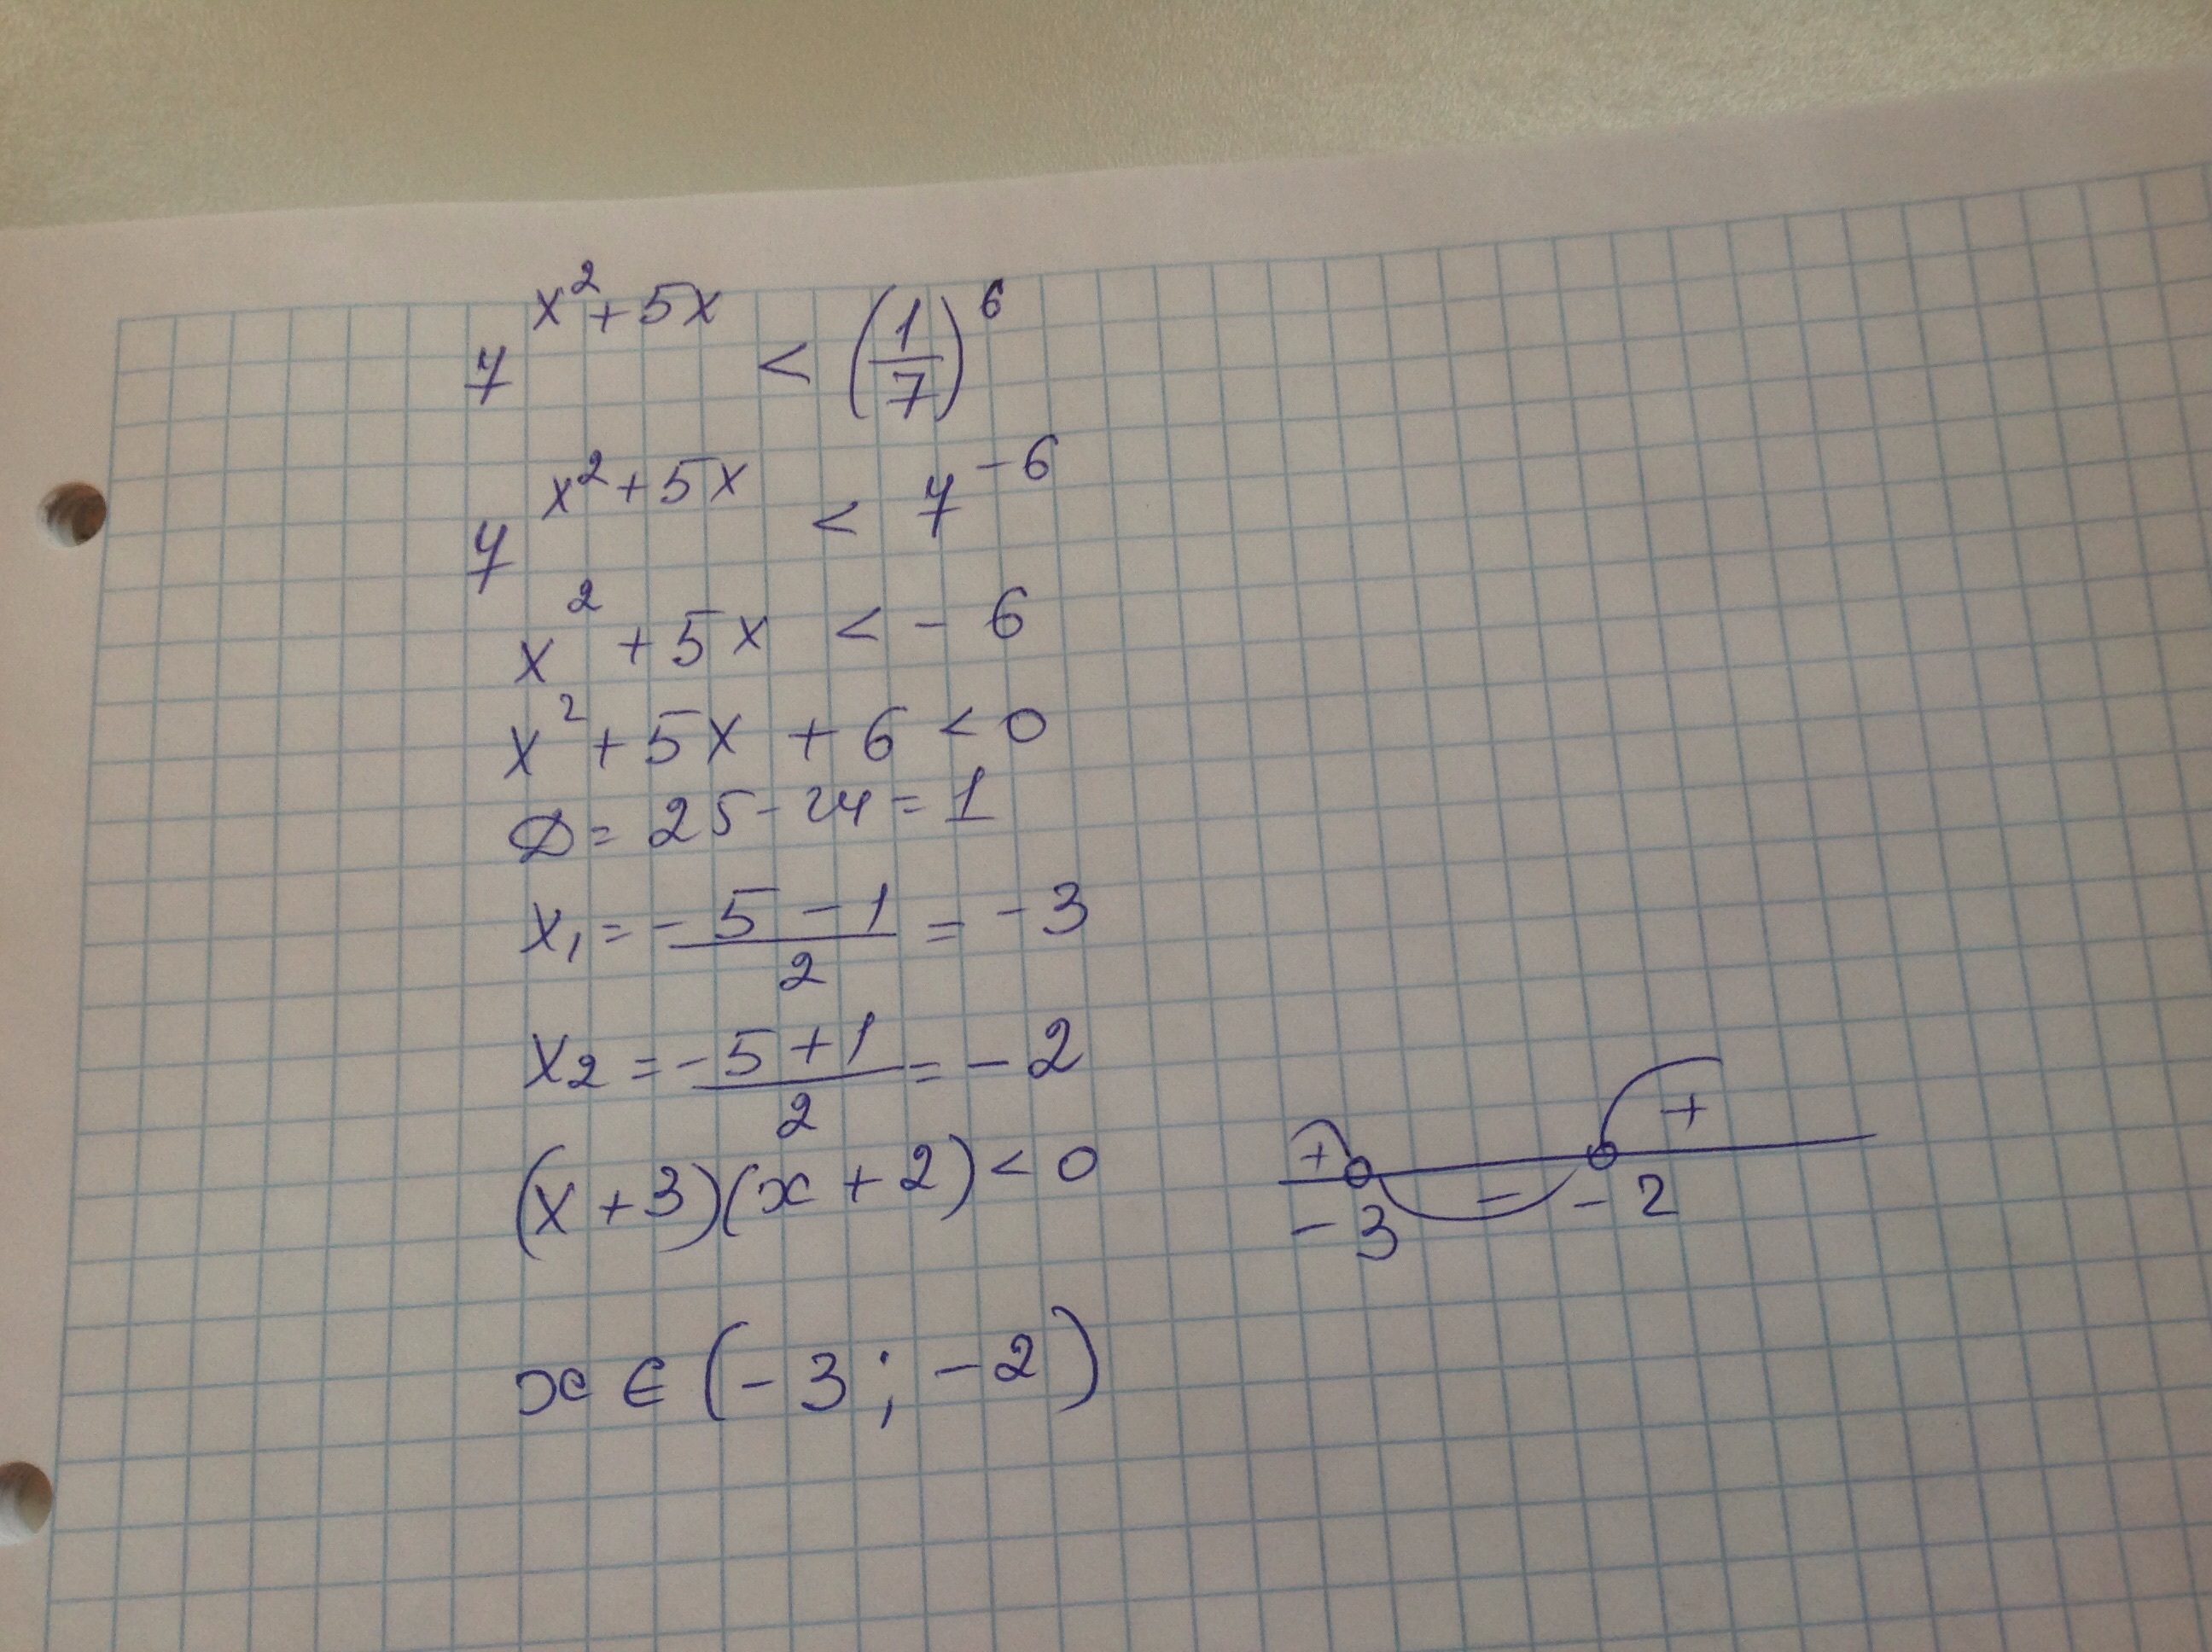 7^(x²+5x) < (1/7)^6
7^(x²+5x) < 7^(-6)
x² + 5x < - 6
x² + 5x + 6 < 0
D = 25 - 24 = 1
x₁ = (-5 - 1)/2 = -3
x₂ = (-5 + 1)/2 = -2
(x + 3)(x + 2) < 0
+ - +
-3 -2
x ∈ (-3 ; -2)